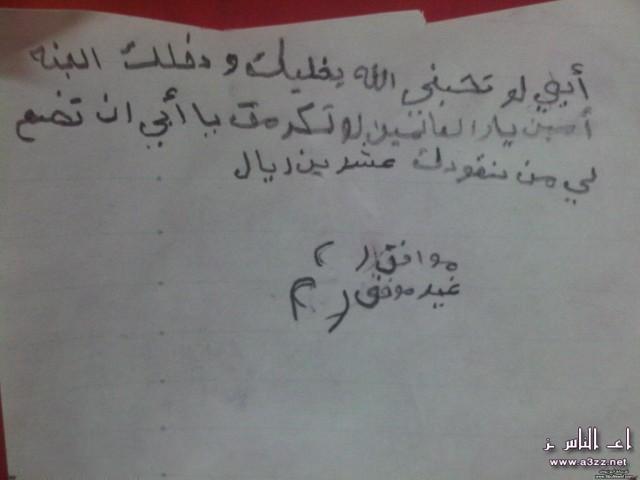 أبي لو تحبني الله يخليك ودخلك الجنه
أمين يارالعالمين لو تكرمت يا أبي ان تضع
لي من نقودك عشرين ريال
موافق ( )
غير موفق ( )
اعز الناس
www.a3zz.net